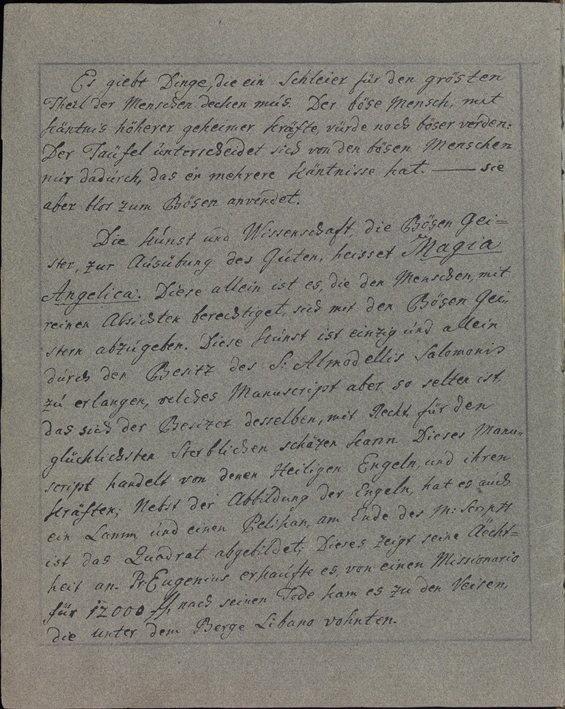 Es giebt Dinge, die ein Schleier für den grösten
Theil der Menschen decken mus. Der böse Mensch, mit
käntnis höherer geheimer kräfte, würde noch böser werden.
Der Taüfel unterscheidet sich von den bösen Menschen
nur dadurch, das er mehrere käntnisse hat. —— sie
aber blos zum Bösen anwendet.
Die kunst und Wissenschaft, die Bösen Gei=
ster, zur Ausübung des Guten, heisset Magia
Angelica. Diese allein ist es, die den Menschen, mit
reinen Absichten berechtiget, sich mit den Bösen Gei,
stern abzugeben. Diese kunst ist einzig und allein
durch den Besitz des S. Almodellis Salomonis
zu erlangen, welches Manuscript aber so selten ist,
das sich der Besizer desselben, mit Recht für den
glücklichsten Sterblichen schäzen kann. Dieses Manu=
script handelt von denen Heiligen Engeln, und ihren
kräften; Nebst der Abbildung der Engeln, hat es auch
ein Lamm und einen Pelikan, am Ende des M: Scripts
ist das Quadrat abgebildet; Dieses zeigt seine Aecht=
heit an. Pr Eugenius erkaufte es, von einen Missionario
für 12000 fl, nach seinen Tode kam es zu den Weisen,
die unter dem Berge Libano wohnten.